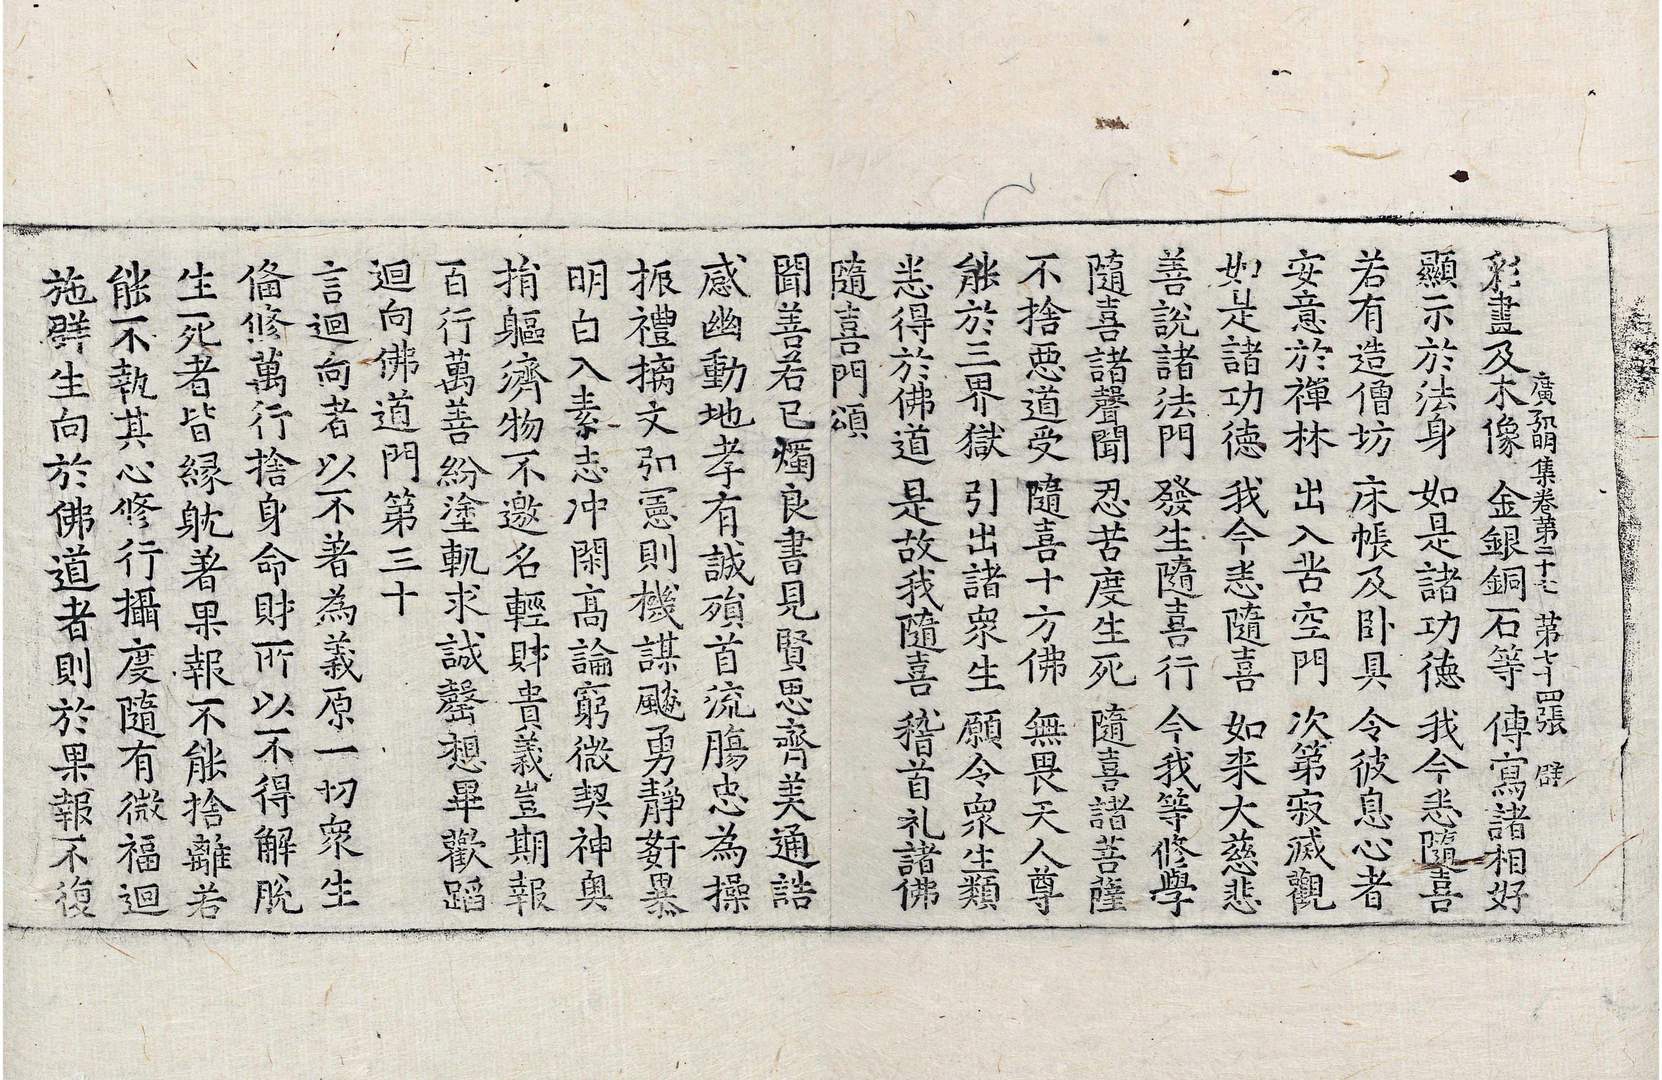 彩畫及木像 金銀銅石等 傳寫諸相好
廣弘明集卷第二十七 第七十四張 壁
顯示於法身 如是諸功德 我今悉隨喜
若有造僧坊 床帳及卧具 令彼息心者
安意於禪林 出入苦空門 次第寂滅觀
如是諸功德 我今悉隨喜 如来大慈悲
善說諸法門 發生隨喜行 今我等修學
隨喜諸聲聞 忍苦度生死 隨喜諸菩薩
不捨惡道受 隨喜十方佛 無畏天人尊
能於三界獄 引出諸衆生 願令衆生類
悉得於佛道 是故我隨喜 稽首礼諸佛
隨喜門頌
聞善若已燭良書見賢思齊美通誥
感幽動地孝有誠殞首流膓忠為操
振禮摛文弘憲則機謀颷勇靜姧暴
明白入素志冲閑高論窮微契神奥
捐軀濟物不邀名輕財貴義豈期報
百行萬善紛塗軌求誠罄想畢歡蹈
迴向佛道門第三十
言迴向者以不著為義原一切衆生
俻修萬行捨身命財所以不得解脫
生死者皆縁躭著果報不能捨離若
能不執其心修行攝度隨有微福迴
施群生向於佛道者則於果報不復